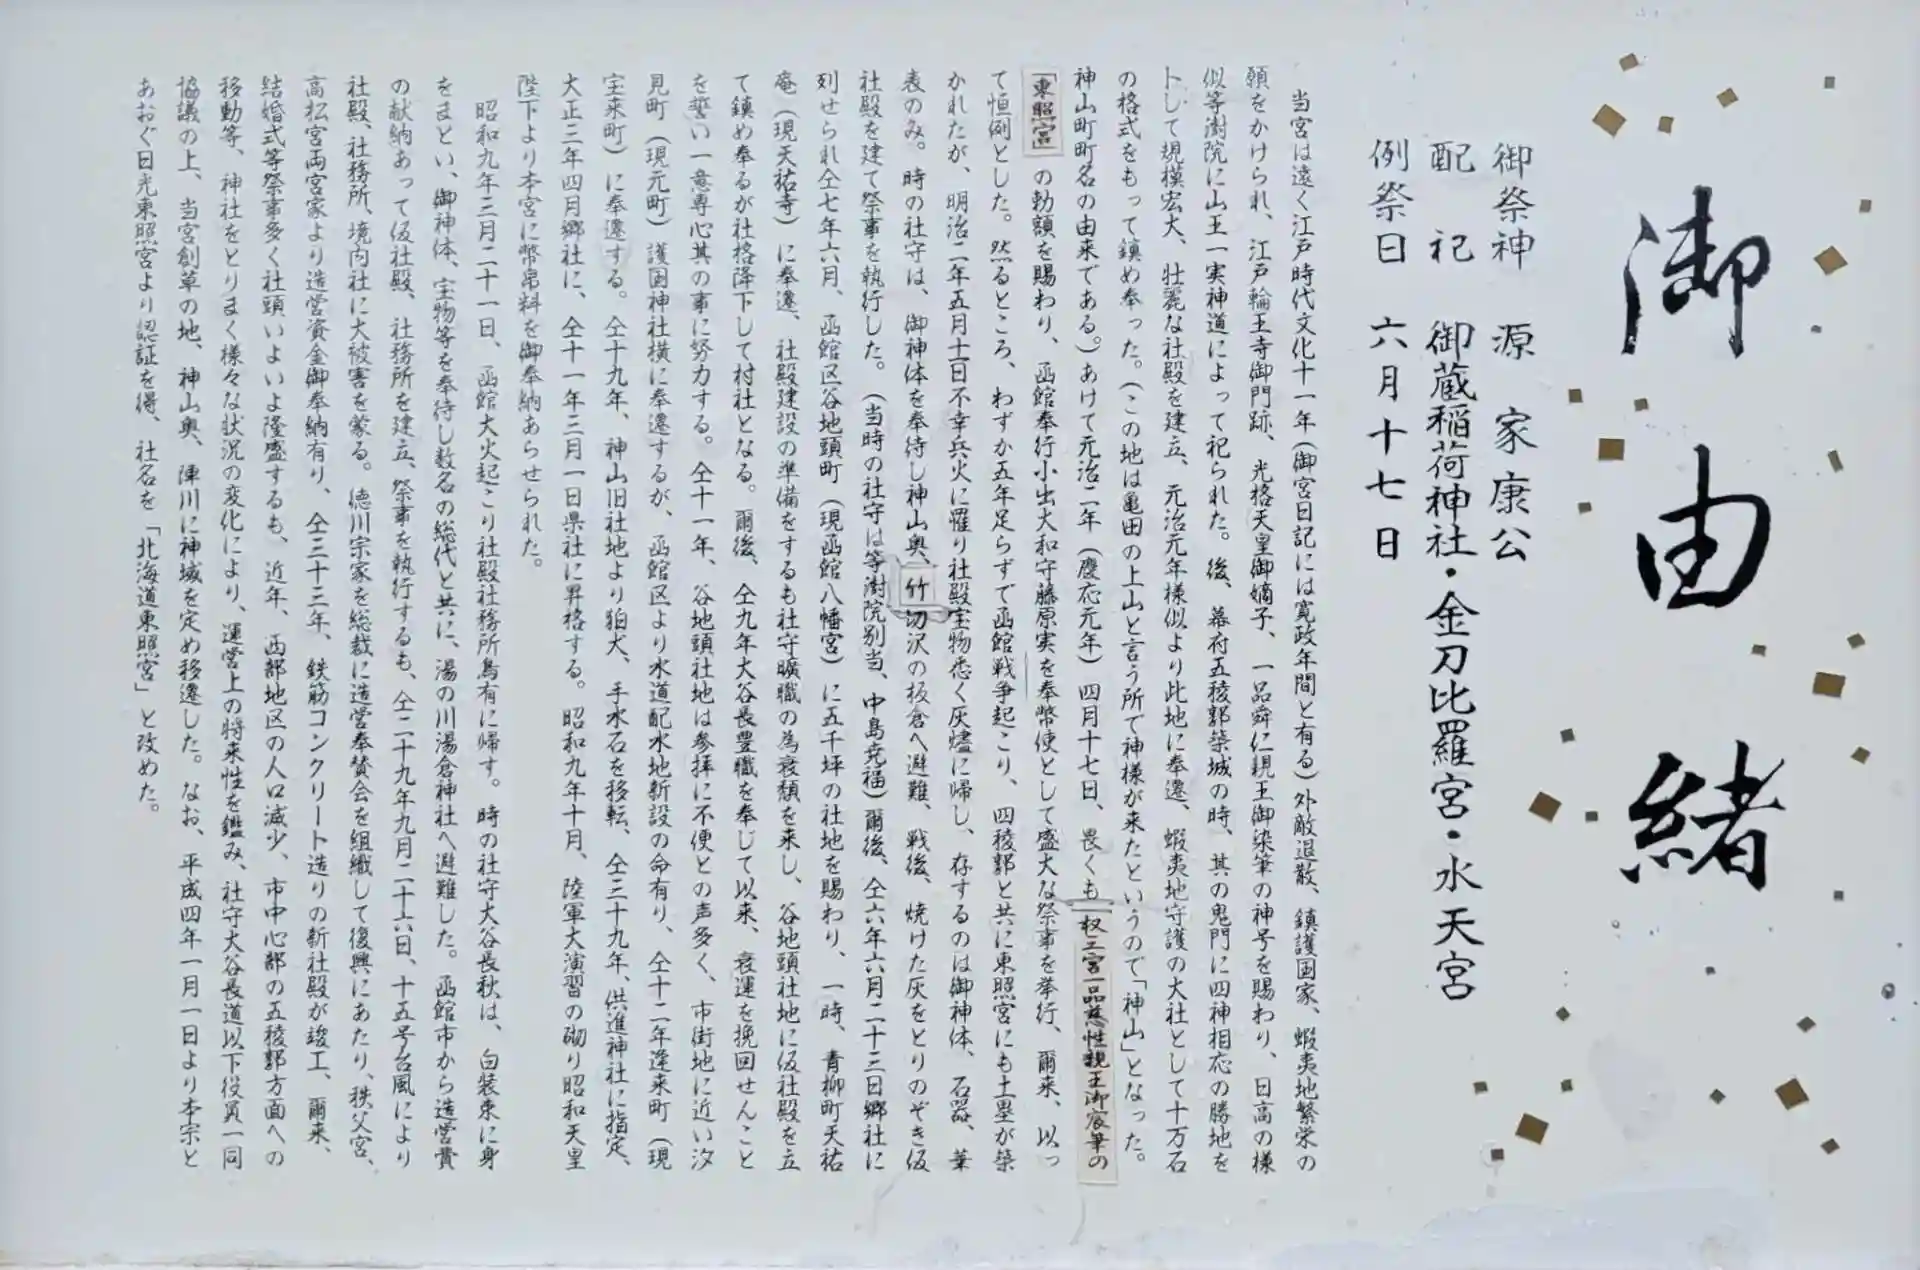 御由緒
御祭神　源　家康公
配　祀　御蔵稲荷神社・金刀比羅宮・水天宮
例祭日　六月十七日
当宮は遠く江戸時代文化十一年(御宮日記には寛政年間と有る)外敵退散、鎮護国家、蝦夷地繁栄の
願をかけられ、江戸輪王寺御門跡、光格天皇御嫡子、一品舜仁親王御染筆の神号を賜わり、日高の様
似等澍院に山王一実神道によって祀られた。後、幕府五稜郭築城の時、其の鬼門に四神相応の勝地を
卜して規模宏大、壮麗な社殿を建立、元治元年様似より此地に奉遷、蝦夷地守護の大社として十万石
の格式をもって鎮め奉った。(この地は亀田の上山と言う所で神様が来たというので「神山」となった。
神山町町名の由来である。)あけて元治二年(慶応元年)四月十七日、畏くも「权三宮一品慈性親王御宸筆の
「東照宮」の勅額を賜わり、函館奉行小出大和守藤原実を奉幣使として盛大な祭事を挙行、爾来、以っ
て恒例とした。然るところ、わずか五年足らずで函館戦争起こり、四稜郭と共に東照宮にも土塁が築
かれたが、明治二年五月十一日不幸兵火に罹り社殿宝物悉く灰燼に帰し、存するのは御神体、石器、華
表のみ。時の社守は、御神体を奉待し神山奥、竹切沢の板倉へ避難、戦後、焼けた灰をとりのぞき仮
社殿を建て祭事を執行した。(当時の社守は等澍院別当、中島尭福)爾後、仝六年六月二十三日郷社に
列せられ仝七年六月、函館区谷地頭町(現函館八幡宮)に五千坪の社地を賜わり、一時、青柳町天祐
庵(現天祐寺)に奉遷、社殿建設の準備をするも社守曠職の為衰頽を来し、谷地頭社地に仮社殿を立
て鎮め奉るが社格降下して村社となる。爾後、仝九年大谷長豊職を奉じて以来、衰運を挽回せんこと
を誓い一意専心其の事に努力する。仝十一年、谷地頭社地は参拝に不便との声多く、市街地に近い汐
見町(現元町)護国神社横に奉遷するが、函館区より水道配水地新設の命有り、仝十二年逢来町(現
宝来町)に奉遷する。仝十九年、神山旧社地より狛犬、手水石を移転、仝三十九年、供進神社に指定、
大正三年四月郷社に、仝十一年三月一日県社に昇格する。昭和九年十月、陸軍大演習の砌り昭和天皇
陛下より本宮に幣帛料を御奉納あらせられた。
昭和九年三月二十一日、函館大火起こり社殿社務所烏有に帰す。時の社守大谷長秋は、白装束に身
をまとい、御神体、宝物等を奉待し数名の総代と共に、湯の川湯倉神社へ避難した。函館市から造営費
の献納あって仮社殿、社務所を建立、祭事を執行するも、仝二十九年九月二十六日、十五号台風により
社殿、社務所、境内社に大被害を蒙る。徳川宗家を総裁に造営奉賛会を組織して復興にあたり、秩父宮、
高松宮両宮家より造営資金御奉納有り、仝三十三年、鉄筋コンクリート造りの新社殿が竣工、爾来、
結婚式等祭事多く社頭いよいよ隆盛するも、近年、西部地区の人口減少、市中心部の五稜郭方面への
移動等、神社をとりまく様々な状況の変化により、運営上の将来性を鑑み、社守大谷長道以下役員一同
協議の上、当宮創草の地、神山奥、陣川に神域を定め移遷した。なお、平成四年一月一日より本宗と
あおぐ日光東照宮より認証を得、社名を「北海道東照宮」と改めた。